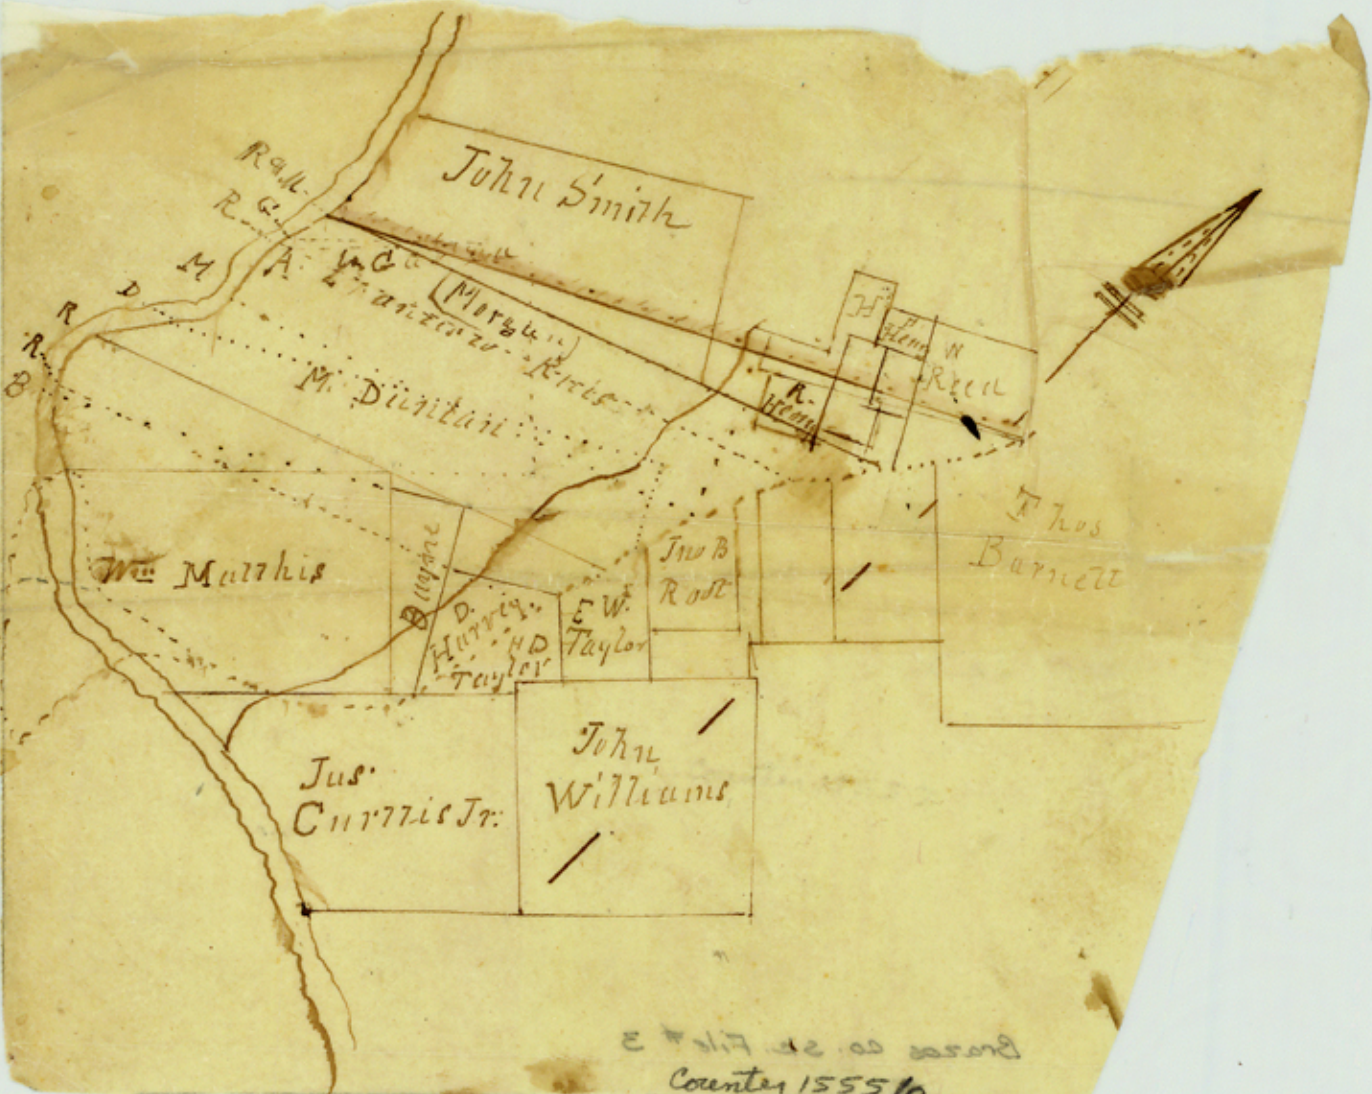 John Smith
R & M.
R
G
M
A
D
R
R
B
(Morgan)
M. Duntan
H
P
Henry
N
Reed
R.
Henry
Thos
Barnett
Wm Matthis
D.
Harvey
H D
Taylor
E W.
Taylor
Jno B
Root
Jas.
Curttis Jr.
John
Williams
Brazos Co. Sk. File # 3
Counter 15551